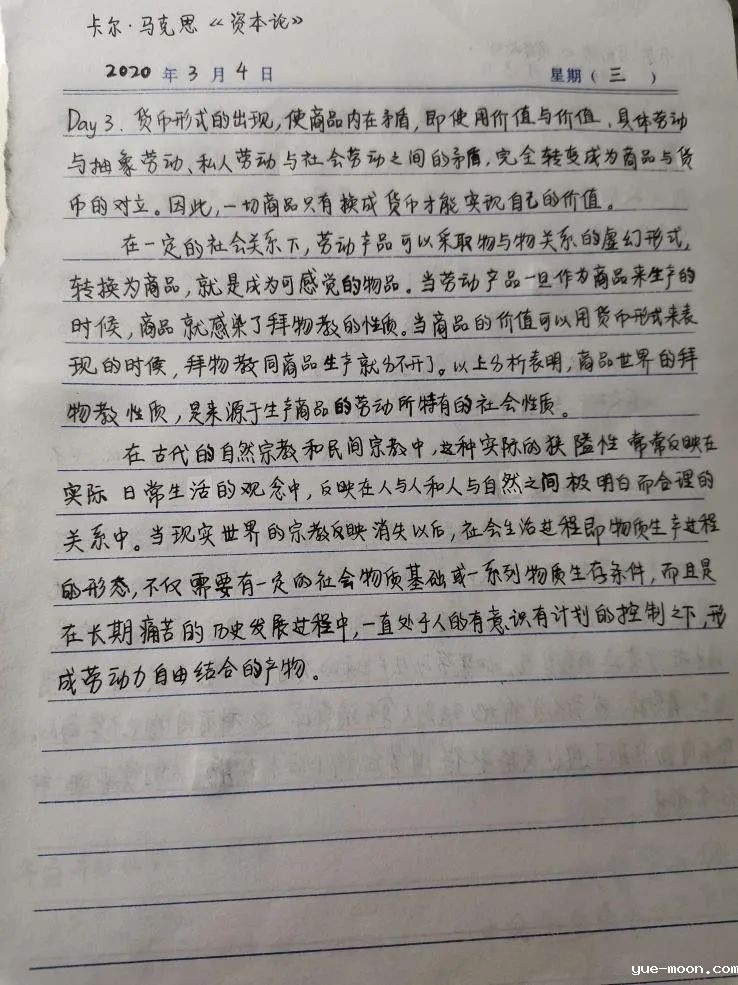 卡尔·马克思《资本论》
2020 年 3 月 4 日 星期(三)
Day 3. 货币形式的出现,使商品内在矛盾,即使用价值与价值、具体劳动
与抽象劳动、私人劳动与社会劳动之间的矛盾,完全转变成为商品与货
币的对立。因此,一切商品只有换成货币才能实现自己的价值。
在一定的社会关系下,劳动产品可以采取物与物关系的虚幻形式,
转换为商品,就是成为可感觉的物品。当劳动产品一旦作为商品来生产的
时候,商品就感染了拜物教的性质。当商品的价值可以用货币形式来表
现的时候,拜物教同商品生产就分不开了。以上分析表明,商品世界的拜
物教性质,是来源于生产商品的劳动所特有的社会性质。
在古代的自然宗教和民间宗教中,这种实际的狭隘性常常反映在
实际日常生活的观念中,反映在人与人和人与自然之间极明白而合理的
关系中。当现实世界的宗教反映消失以后,社会生活过程即物质生产过程
的形态,不仅需要有一定的社会物质基础或一系列物质生存条件,而且是
在长期痛苦的历史发展过程中,一直处于人的有意识有计划的控制之下,形
成劳动力自由结合的产物。
yue-moon.com